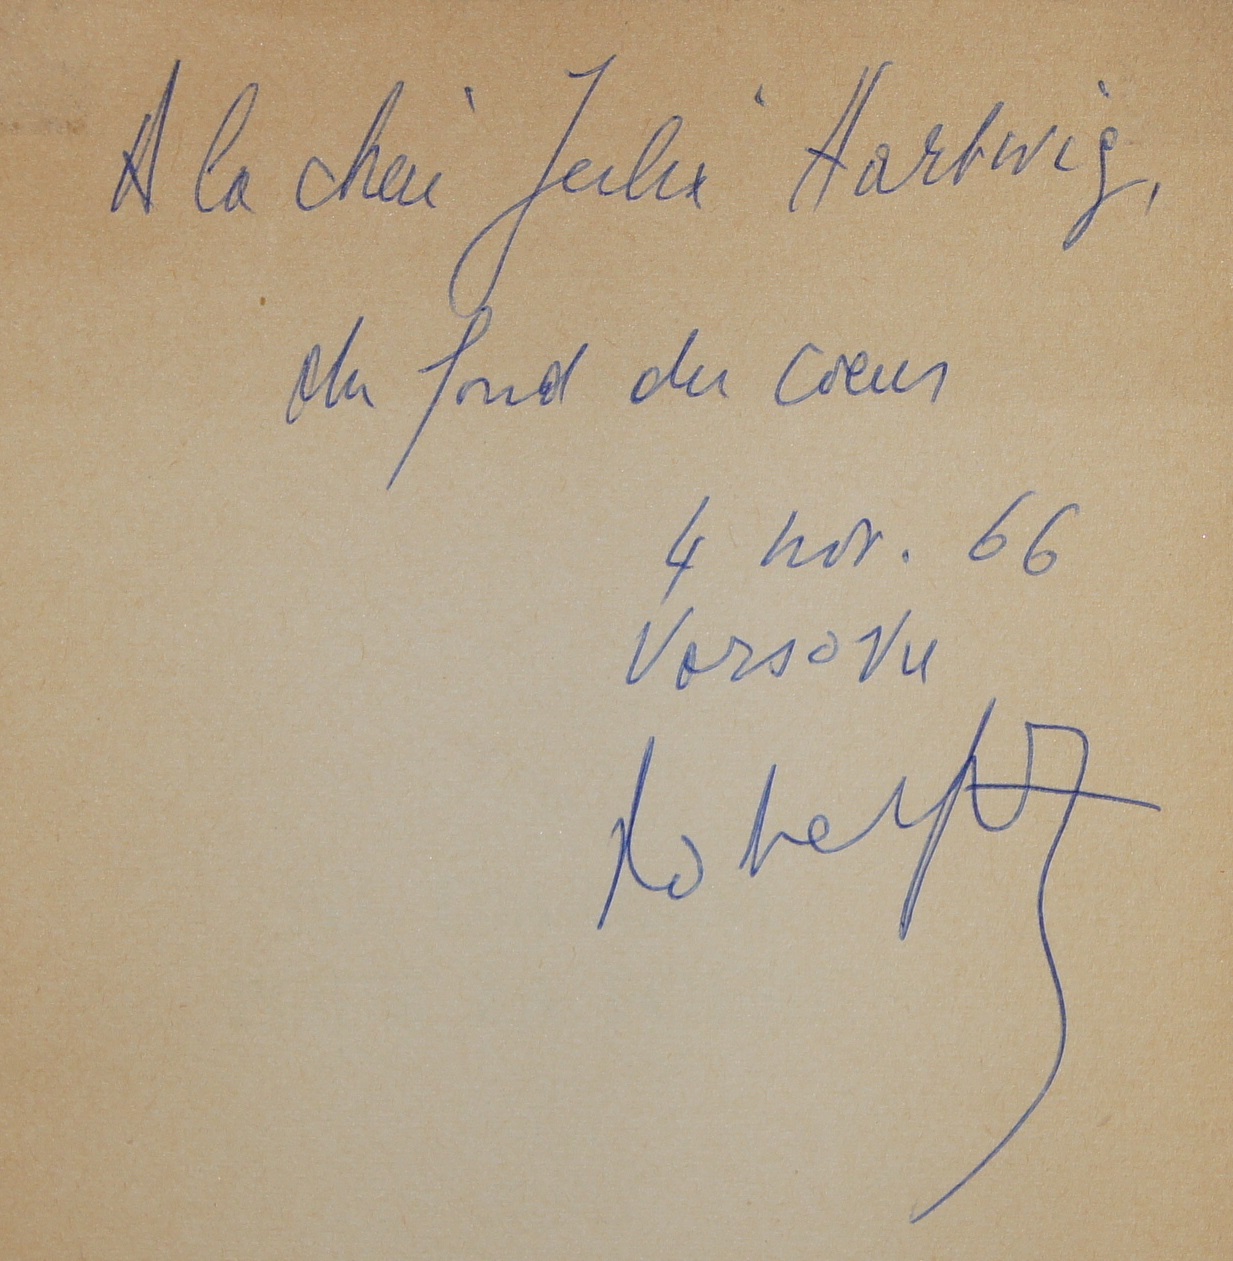 A la chère Julia Hartwig,
du fond du cœur
4 nov. 66
Varsovie